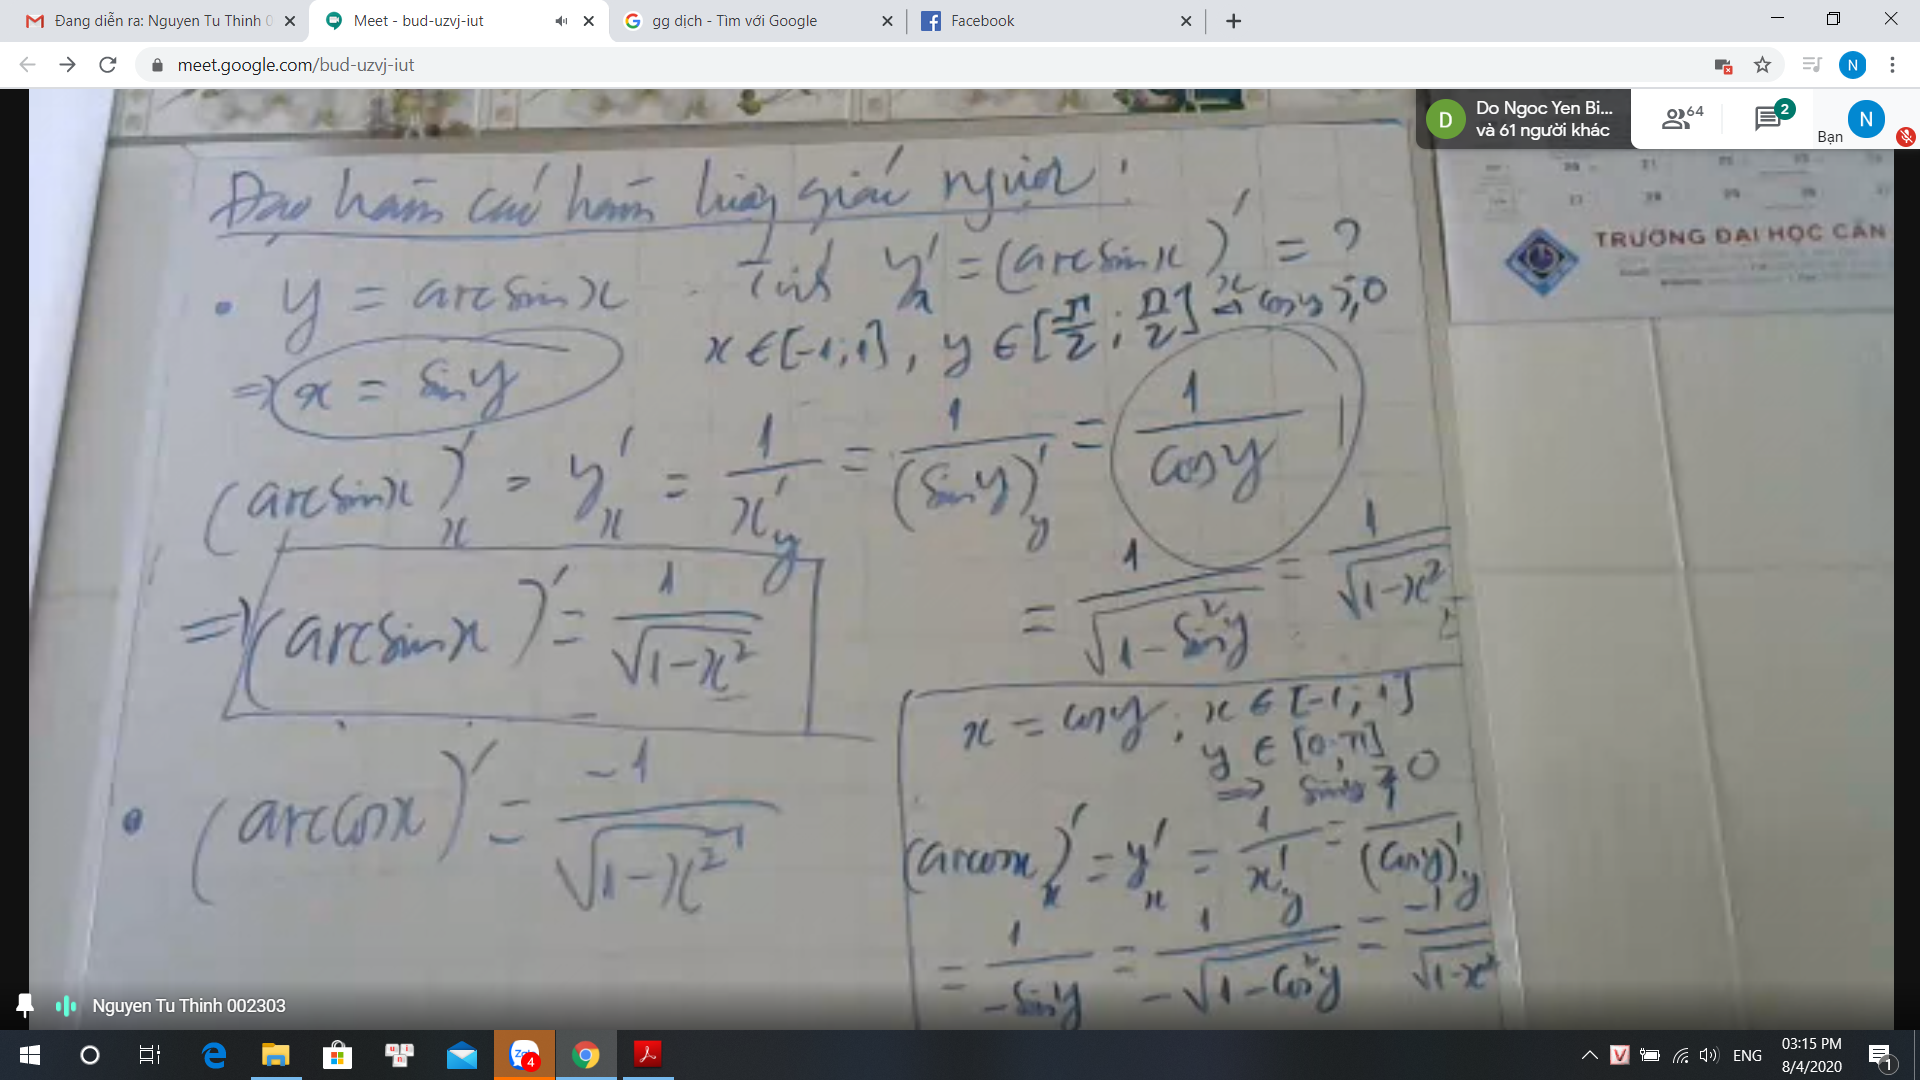 Đang diễn ra: Nguyen Tu Thinh 0
Meet - bud-uzvj-iut
gg dịch - Tìm với Google
Facebook
meet.google.com/bud-uzvj-iut
N
D
Do Ngoc Yen Bi...
và 61 người khác
64
2
Bạn
N
Đạo hàm các hàm lượng giác ngược:
TRƯỜNG ĐẠI HỌC CẦN
• y = arcsinx . Tính y'ₓ = (arcsinx)'ₓ = ?
x ∈ [-1;1], y ∈ [-π/2; π/2] => cosy ≥ 0
=> x = siny
(arcsinx)'ₓ = y'ₓ = 1/x'_y = 1/(siny)'_y = 1/cosy
= 1/√(1-sin²y) = 1/√(1-x²)
=> (arcsinx)' = 1/√(1-x²)
• (arccosx)' = -1/√(1-x²)
x = cosy, x ∈ [-1;1]
y ∈ [0;π]
=> siny ≥ 0
(arccosx)'ₓ = y'ₓ = 1/x'_y = 1/(cosy)'_y
= 1/-siny = 1/-√(1-cos²y) = -1/√(1-x²)
Nguyen Tu Thinh 002303
4
ENG
03:15 PM
8/4/2020
1